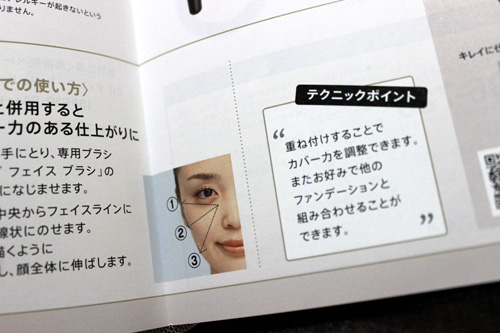 ルギーが起きないという
りません。
での使い方〉
と併用すると
ー力のある仕上がりに
手にとり、専用ブラシ
フェイス ブラシ」の
になじませます。
中央からフェイスラインに
線状にのせます。
描くように
し、顔全体に伸ばします。
①
②
③
テクニックポイント
“
重ね付けすることで
カバー力を調整できます。
またお好みで他の
ファンデーションと
組み合わせることが
できます。
”
キレイに